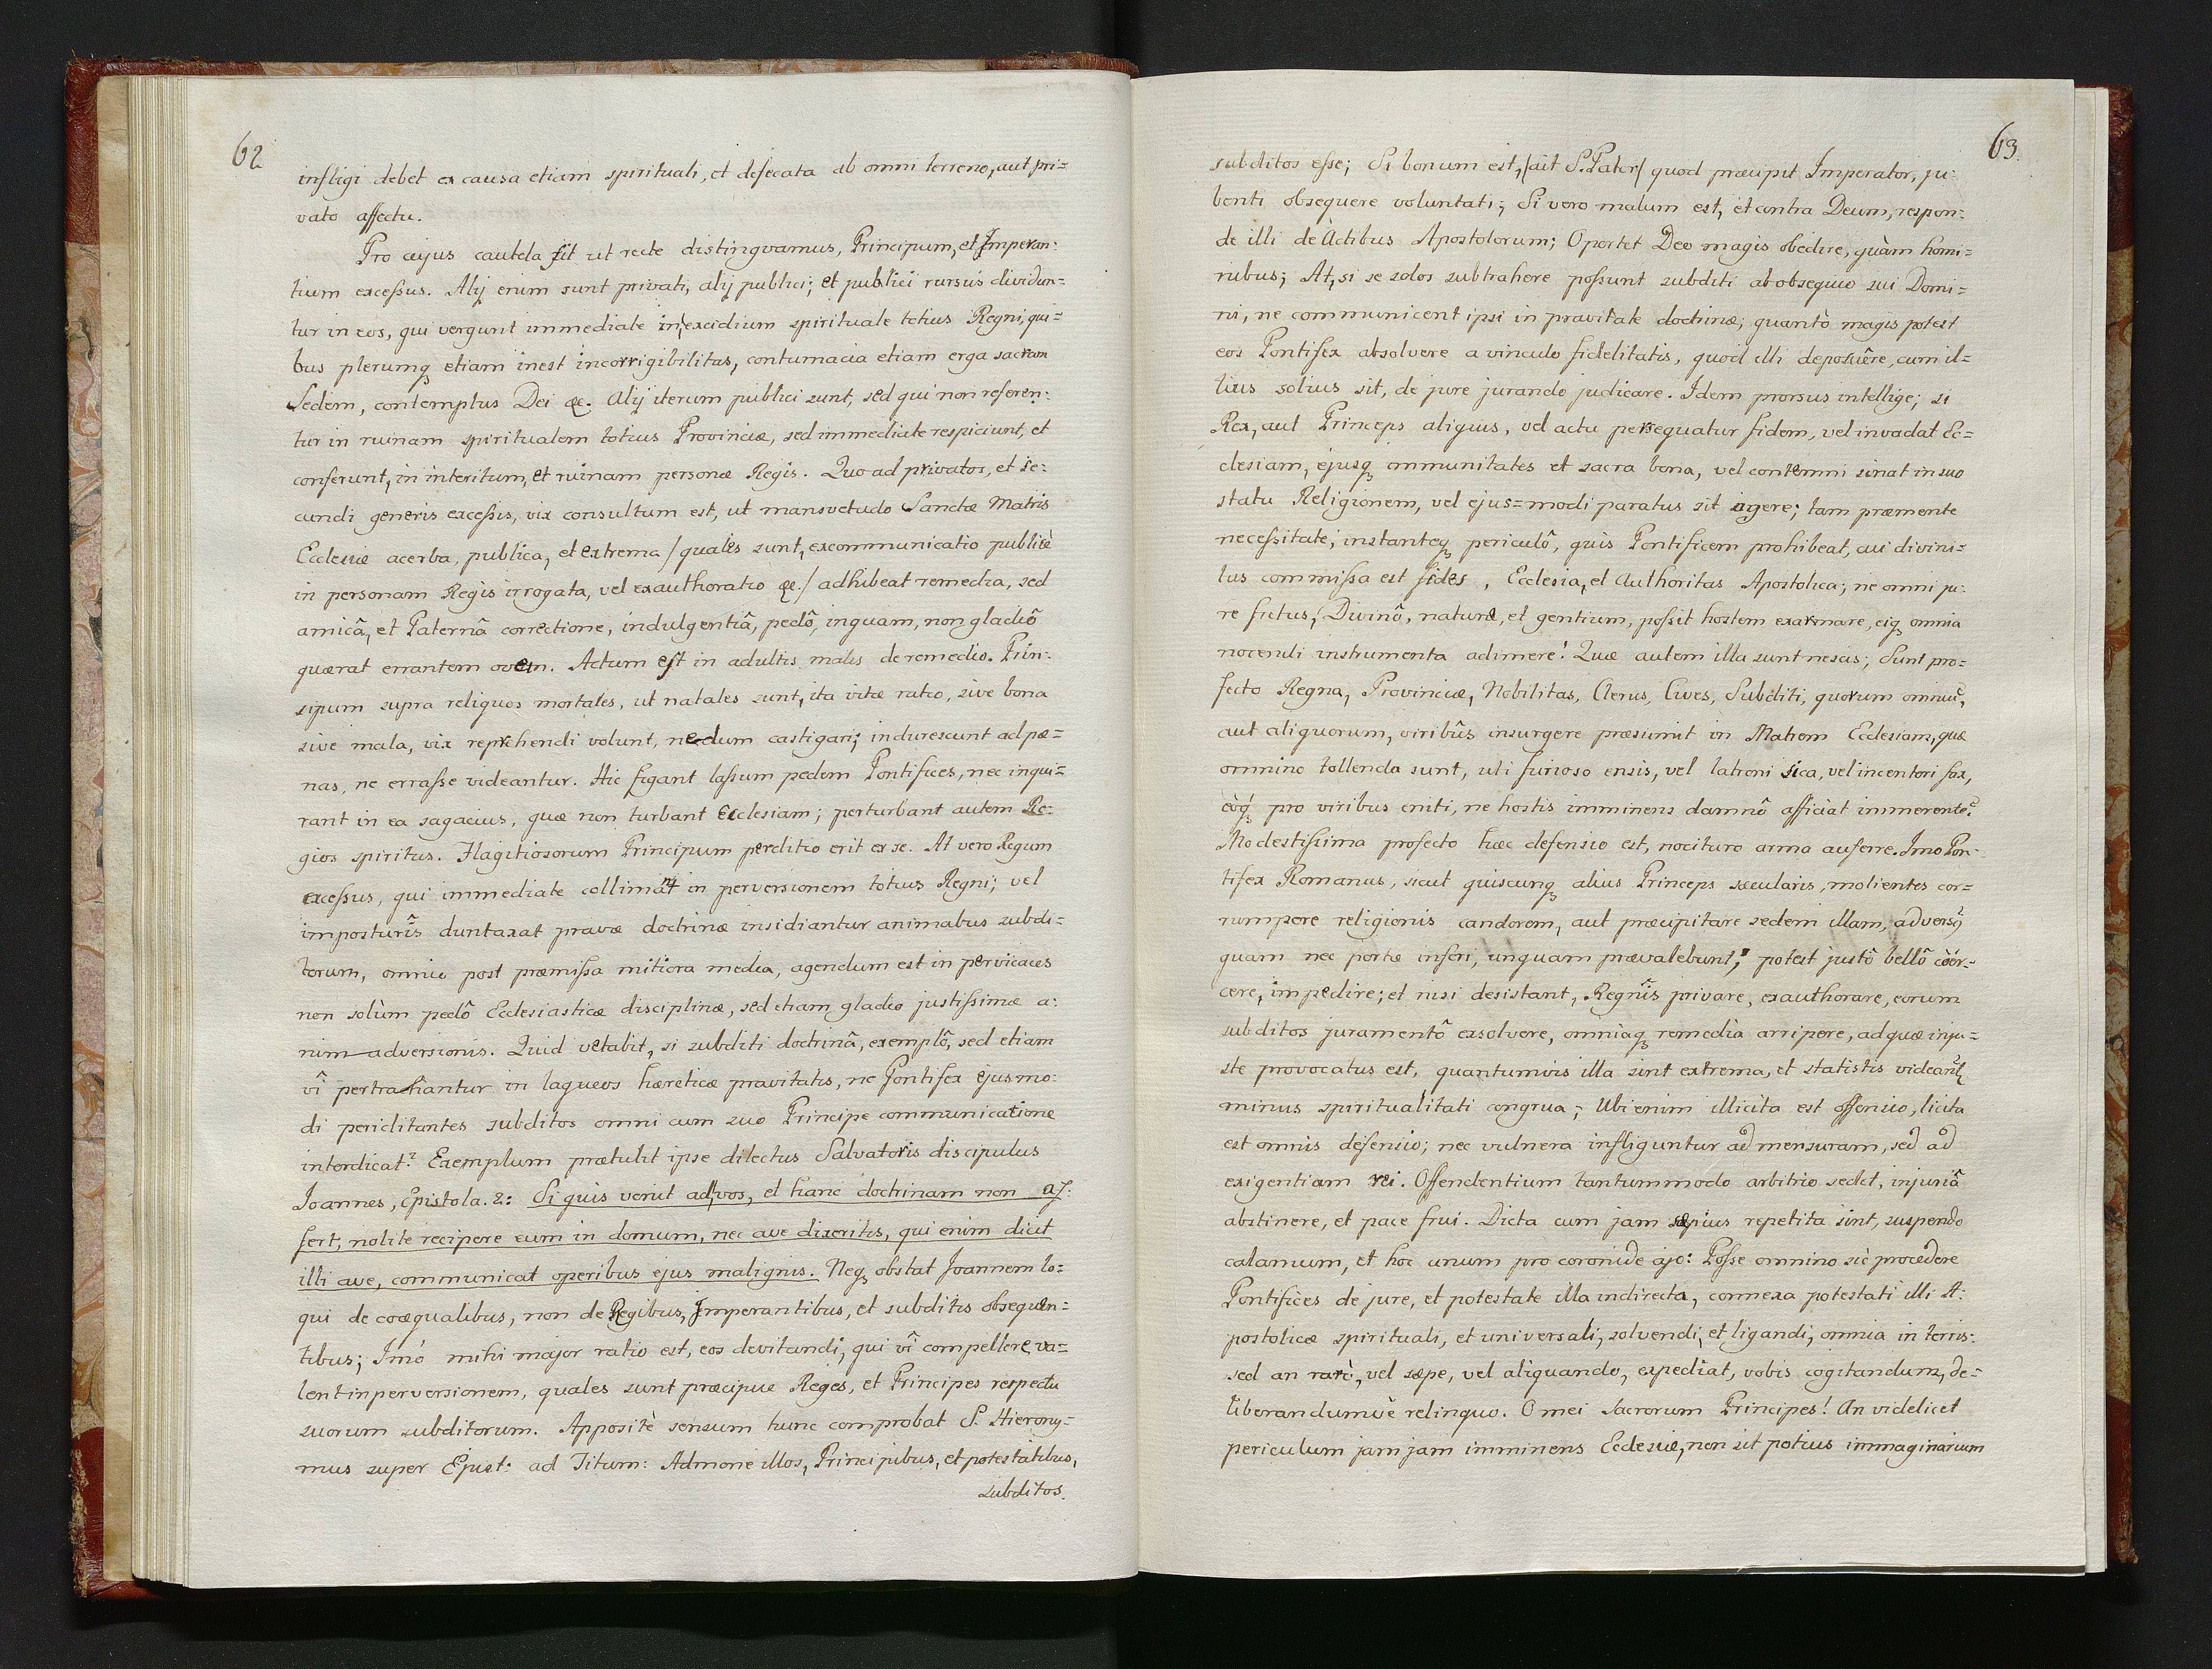 62
infligi debet ex causa etiam spirituali, et defecata ab omni terreno, aut pri=
vato affectu.
Pro cujus cautela fit ut recte distingvamus, Principum, et Imperan:
tium excessus. Alij enim sunt privati, alij publici; et publici rursus dividun=
tur in eos, qui vergunt immediate in excidium spirituale totius Regni, qui=
bus plerumq́ꝫ etiam inest incorrigibilitas, contumacia etiam erga sacram
Sedem, contemptus Dei &c. Alij iterum publici sunt, sed qui non referen:
tur in ruinam spiritualem totius Provinciæ, sed immediate respiciunt, et
conferunt, in interitum, et ruinam personæ Regis. Quo ad privatos, et se:
cundi generis excessis, vix consultum est, ut mansvetudo Sanctæ Matris
Ecclesiæ acerba, publica, et extrema / quales sunt, excommunicatio publicè
in personam Regis irrogata, vel exauthoratio &c. / adhibeat remedia, sed
amicâ, et Paternâ correctione, indulgentiâ, pedô, inquam, non gladiô
quærat errantem ovem. Actum est in adultis malis de remedio. Prin:
sipum supra reliquos mortales, ut natales sunt, ita vitæ ratio, sive bona
sive mala, vix reprehendi volunt, nedum castigari; indurescunt ad pæ=
nas, ne errasse videantur. Hic figant lassum pedem Pontifices, nec inqui=
rant in ea sagacius, quæ non turbant Ecclesiam; perturbant autem Re:
gios spiritus. Flagitiosorum Principum perditio erit ex se. At vero Regum
excessus, qui immediate collimãt in perversionem totius Regni; vel
imposturîs duntaxat pravæ doctrinæ insidiantur animabus subdi=
torum, omnio post præmissa mitiora media, agendum est in pervicaces
non solùm pedô Ecclesiasticæ disciplinæ, sed etiam gladio justissimæ a:
nim adversionis. Quid vetabit, si subditi doctrinâ, exemplô, sed etiam
vî pertrahantur in laqueos hæreticæ pravitatis, ne Pontifex ejusmo:
di periclitantes subditos omni cum suo Principe communicatione
interdicat? Exemplum prætulit ipse dilectus Salvatoris discipulus
Joannes, Epistola. 2: Si quis venit ad vos, et hanc doctrinam non af:
fert, nolite recipere eum in domum, nec ave dixeritis, qui enim dicit
illi ave, communicat operibus ejus malignis. Neqꝫ obstat Joannem lo=
qui de coæqualibus, non de Regibus, Imperantibus, et subditis obsequen=
tibus; Imò mihi major ratio est, eos devitandi, qui vî compellere va=
lent in perversionem, quales sunt præcipue Reges, et Principes respectu
suorum subditorum. Appositè sensum hunc comprobat S. Hierony=
mus super Epist: ad Titum: Admone illos, Principibus, et potestatibus,
subditos.
63.
subditos esse; Si bonum est, /ait S. Pater/ quod præcipit Imperator, ju:
benti obsequere voluntati; Si vero malum est, et contra Deum, respon:
de illi de Actibus Apostolorum; Oportet Deo magis obedire, quàm homi=
nibus; At, si se solos subtrahere possunt subditi ab obsequio sui Domi=
ni, ne communicent ipsi in pravitate doctrinæ; quantò magis potest
eos Pontifex absolvere a vinculo fidelitatis, quod illi deposuêre, cum il=
lius solius sit, de jure jurando judicare. Idem prorsus intellige; si
Rex, aut Princeps aliquis, vel actu persequatur fidem, vel invadat Ec=
clesiam, ejusqꝫ immunitates et sacra bona, vel contemni sinat in suo
statu Religionem, vel ejus=modi paratus sit agere; tam præmente
necessitate, instanteqꝫ periculô, quis Pontificem prohibeat, cui divini=
tus commissa est fides, Ecclesia, et Authoritas Apostolica; ne omni ju:
re fretus, Divinô, naturæ, et gentium, possit hostem exarmare, eiqꝫ omnia
nocendi instrumenta adimere! Quæ autem illa sunt nescis; Sunt pro=
fecto Regna, Provinciæ, Nobilitas, Clerus, Cives, Subditi, quorum omniũ,
aut aliquorum, viribûs insurgere præsumit in Matrem Ecclesiam, quæ
omnino tollenda sunt, uti furioso ensis, vel latroni sica, vel incentori fax,
eòqꝫ pro viribus eniti, ne hostis imminens damnô afficiat immerentẽ.
Modestissima profecto hæc defensio est, nocituro arma auferre. Imo Pon:
tifex Romanus, sicut quiscunqꝫ alius Princeps sæcularis, molientes cor=
rumpere religionis candorem, aut præcipitare sedem illam, adversq̃
quam nec portæ inferi, unquam prævalebunt, potest justô bellô coër=
cere, impedire; et nisi desistant, Regnîs privare, exauthorare, eorum
subditos juramentô exsolvere, omniaqꝫ remedia arripere, ad quæ inju=
ste provocatus est, quantumvis illa sint extrema, et statistis videant̃
minus spiritualitati congrua; Ubi enim illicita est offensio, licita
est omnis defensio; nec vulnera infliguntur ad mensuram, sed ad
exigentiam rei. Offendentium tantummodo arbitrio sedet, injuriâ
abstinere, et pace frui. Dicta cum jam sæpius repetita sint, suspendo
calamum, et hoc unum pro coronide ajo: Posse omnino sic procedere
Pontifices de jure, et potestate illa indirecta, connexa potestati illi A:
postolicæ spirituali, et universali, solvendi, et ligandi, omnia in terris:
sed an rarò, vel sæpe, vel aliquando, expediat, vobis cogitandum, de=
liberandumvè relinquo. O mei Sacrorum Principes! An videlicet
periculum jam jam imminens Ecclesiæ, non sit potius immaginarium